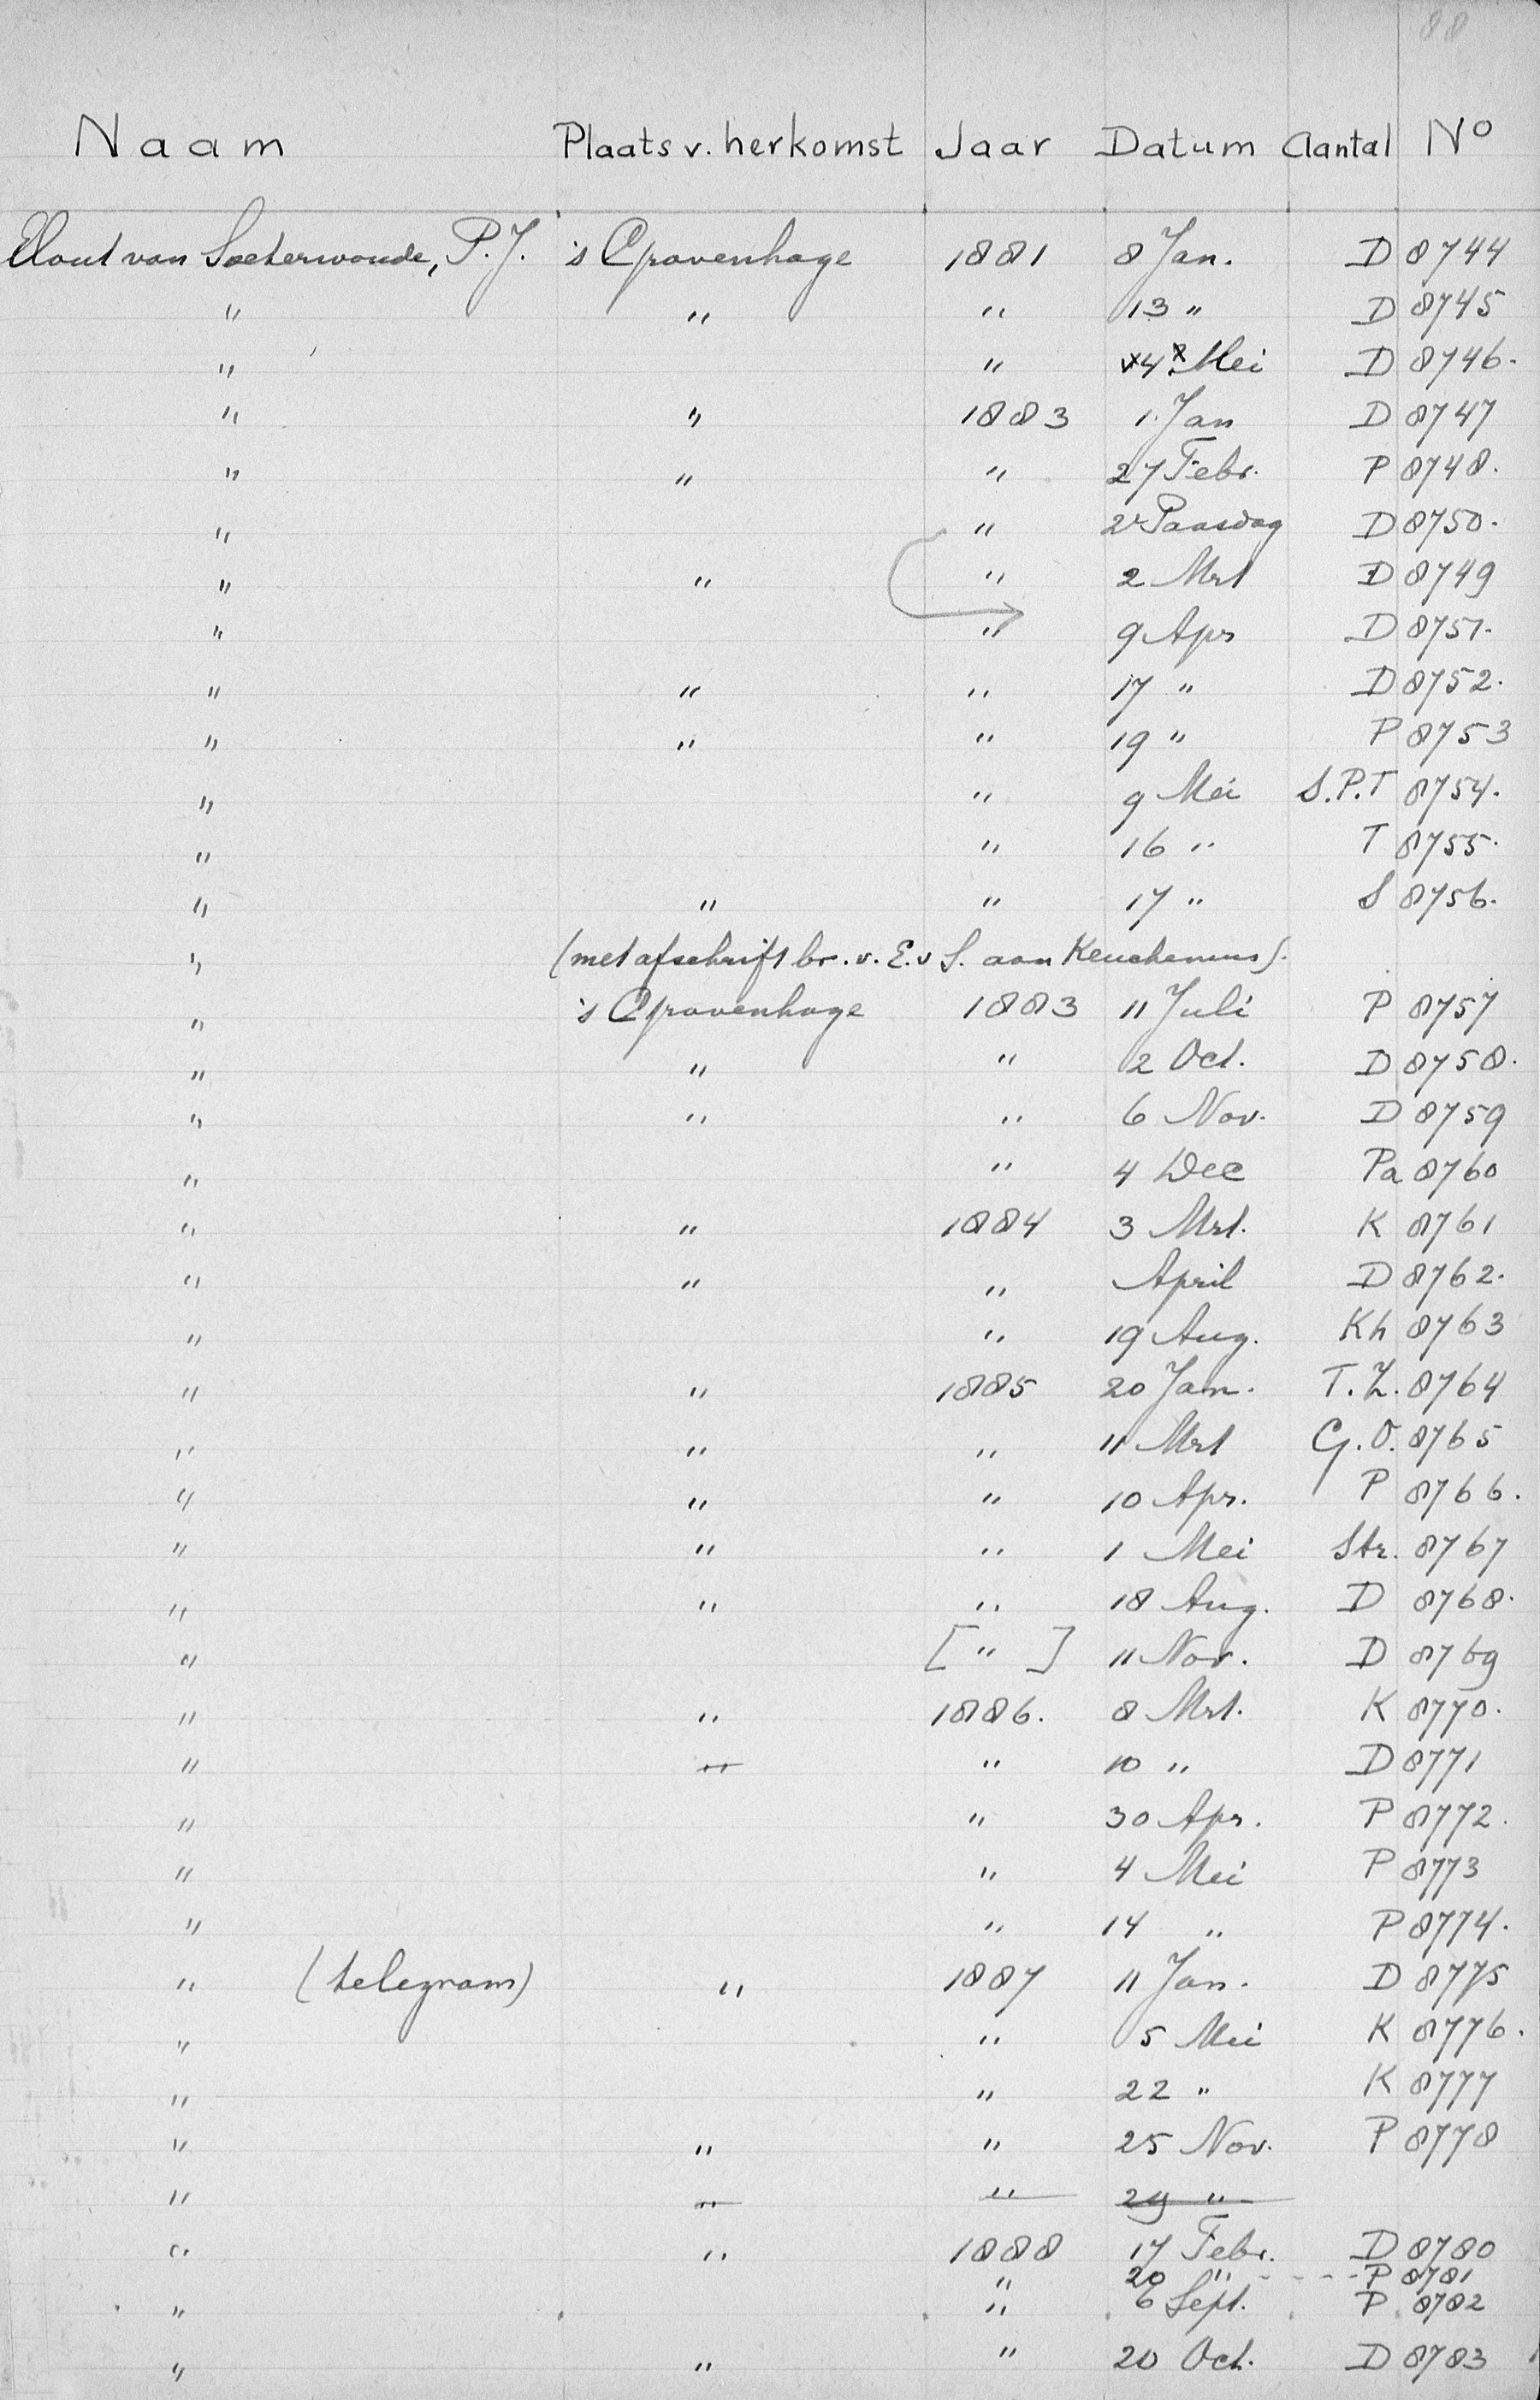 88
Naam Plaats v. herkomst Jaar Datum Aantal No
Elout van Soeterwoude, P.J. 's Gravenhage 1881 8 Jan. D 8744
" " " 13 " D 8745
" " 4 Mei D 8746.
" " 1883 1 Jan D 8747
" " " 27 Febr. P 8748.
" " 2e Paasdag D 8750.
" " " 2 Mrt D 8749
" " 9 Apr D 8751.
" " " 17 " D 8752.
" " " 19 " P 8753
" " 9 Mei S.P.T 8754.
" " 16 " T 8755.
" " " 17 " S 8756.
" (met afschrift br. v. E. v S. aan Keuchenius).
" 's Gravenhage 1883 11 Juli P 8757
" " " 2 Oct. D 8758.
" " " 6 Nov. D 8759
" " 4 Dec Pa 8760
" " 1884 3 Mrt. K 8761
" " " April D 8762.
" " 19 Aug. Kh 8763
" " 1885 20 Jan. T.Z. 8764
" " " 11 Mrt G.O. 8765
" " " 10 Apr. P 8766.
" " " 1 Mei Str. 8767
" " " 18 Aug. D 8768.
" [ " ] 11 Nov. D 8769
" " 1886. 8 Mrt. K 8770.
" " " 10 " D 8771
" " 30 Apr. P 8772.
" " 4 Mei P 8773
" " 14 " P 8774.
" (telegram) " 1887 11 Jan. D 8775
" " 5 Mei K 8776.
" " 22 " K 8777
" " " 25 Nov. P 8778
" " " 29 "
" " 1888 17 Febr. D 8780
" 20 " - - - - P 8781
" " 6 Sept. P 8782
" " " 20 Oct. D 8783